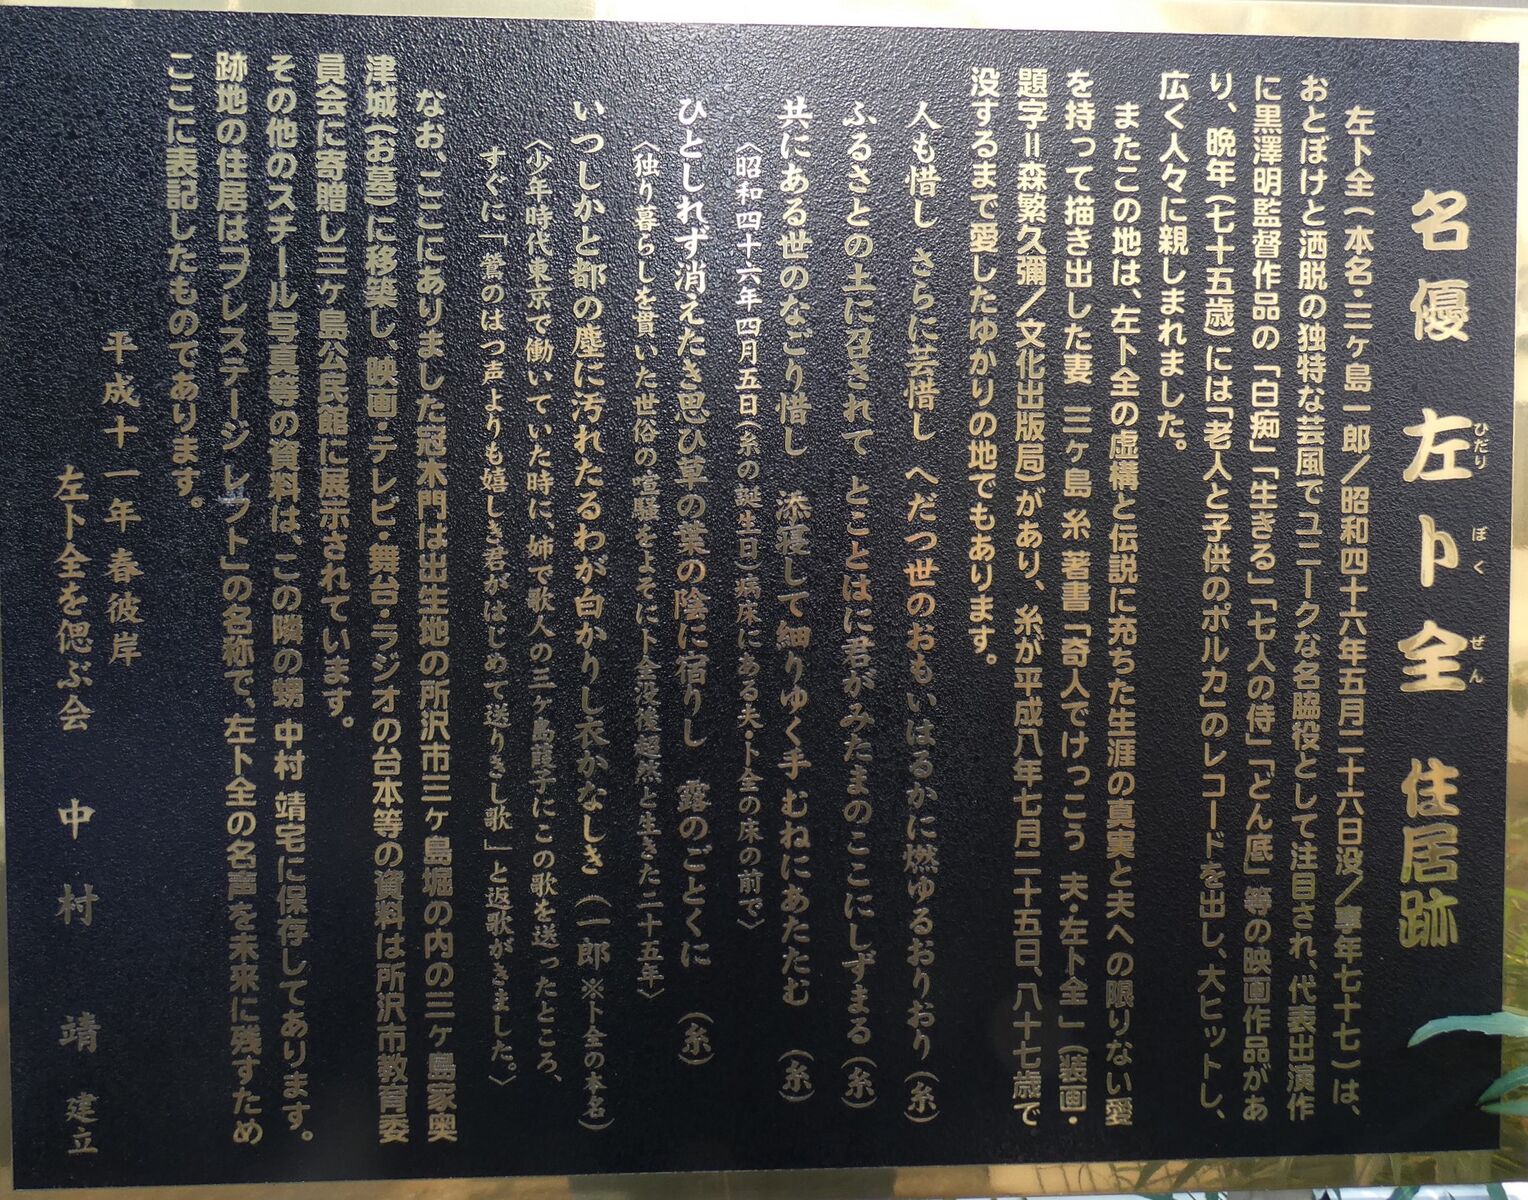 名優 左卜全 住居跡
ひだり ぼく ぜん
左卜全(本名・三ヶ島一郎/昭和四十六年五月二十六日没/享年七十七)は、
おとぼけと洒脱の独特な芸風でユニークな名脇役として注目され、代表出演作
に黒澤明監督作品の「白痴」「生きる」「七人の侍」「どん底」等の映画作品があ
り、晩年(七十五歳)には「老人と子供のポルカ」のレコードを出し、大ヒットし、
広く人々に親しまれました。
またこの地は、左卜全の虚構と伝説に充ちた生涯の真実と夫への限りない愛
を持って描き出した妻 三ヶ島 糸 著書「奇人でけっこう 夫・左卜全」(装画・
題字=森繁久彌/文化出版局)があり、糸が平成八年七月二十五日、八十七歳で
没するまで愛したゆかりの地でもあります。
人も惜し さらに芸惜し へだつ世のおもいはるかに燃ゆるおりおり(糸)
ふるさとの土に召されて とことはに君がみたまのここにしずまる(糸)
共にある世のなごり惜し 添寝して細りゆく手むねにあたたむ (糸)
〈昭和四十六年四月五日(糸の誕生日)病床にある夫・卜全の床の前で〉
ひとしれず消えたき思ひ草の葉の陰に宿りし 露のごとくに (糸)
〈独り暮らしを貫いた世俗の喧騒をよそに卜全没後超然と生きた二十五年〉
いつしかと都の塵に汚れたるわが白かりし衣かなしき (一郎 ※卜全の本名)
〈少年時代東京で働いていた時に、姉で歌人の三ヶ島葭子にこの歌を送ったところ、
すぐに「鶯のはつ声よりも嬉しき君がはじめて送りきし歌」と返歌がきました。〉
なお、ここにありました冠木門は出生地の所沢市三ヶ島堀の内の三ヶ島家奥
津城(お墓)に移築し、映画・テレビ・舞台・ラジオの台本等の資料は所沢市教育委
員会に寄贈し三ヶ島公民館に展示されています。
その他のスチール写真等の資料は、この隣の甥 中村 靖宅に保存してあります。
跡地の住居は「フレステージ レフト」の名称で、左卜全の名声を未来に残すため
ここに表記したものであります。
平成十一年春彼岸
左卜全を偲ぶ会 中村 靖 建立